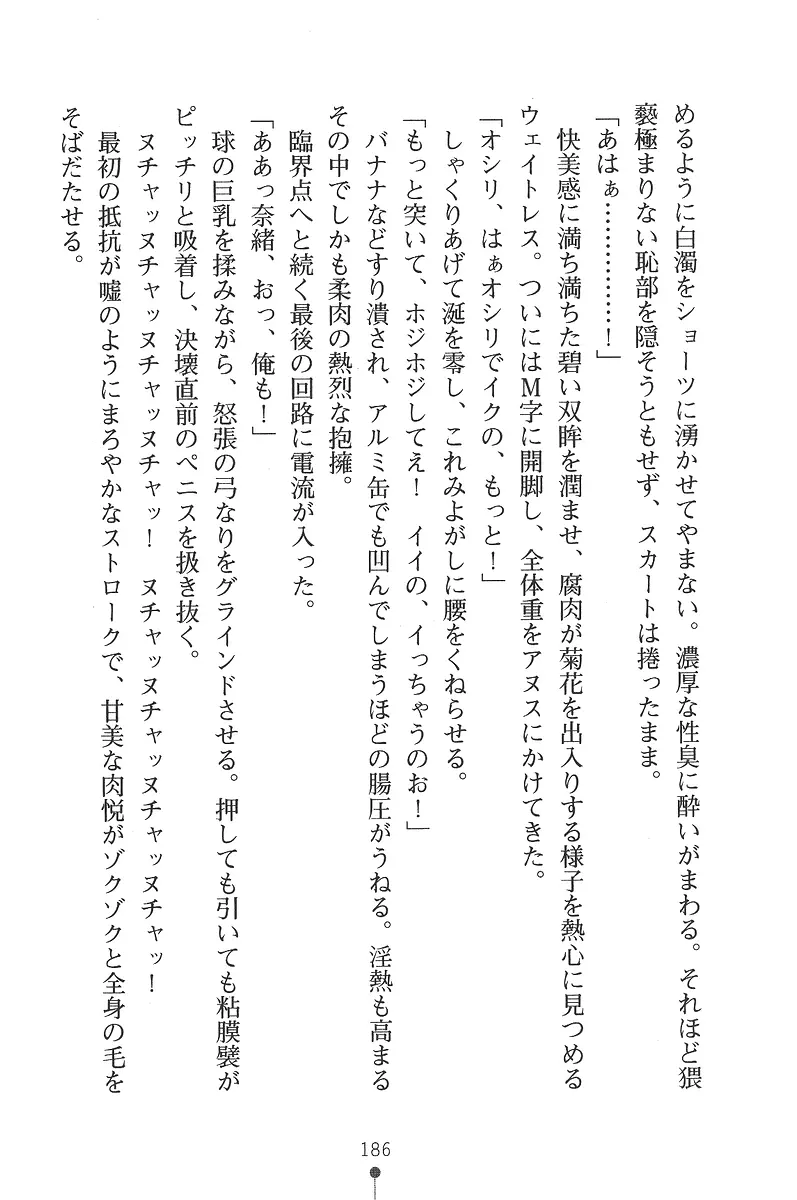 めるように白濁をショーツに湧かせてやまない。濃厚な性臭に酔いがまわる。それほど猥
褻極まりない恥部を隠そうともせず、スカートは捲ったまま。
「あはぁ……………！」
快美感に満ち満ちた碧い双眸を潤ませ、腐肉が菊花を出入りする様子を熱心に見つめる
ウェイトレス。ついにはＭ字に開脚し、全体重をアヌスにかけてきた。
「オシリ、はぁオシリでイクの、もっと！」
しゃくりあげて涎を零し、これみよがしに腰をくねらせる。
「もっと突いて、ホジホジしてえ！　イイの、イっちゃうのお！」
バナナなどすり潰され、アルミ缶でも凹んでしまうほどの腸圧がうねる。淫熱も高まる
その中でしかも柔肉の熱烈な抱擁。
臨界点へと続く最後の回路に電流が入った。
「ああっ奈緒、おっ、俺も！」
球の巨乳を揉みながら、怒張の弓なりをグラインドさせる。押しても引いても粘膜襞が
ピッチリと吸着し、決壊直前のペニスを扱き抜く。
ヌチャッヌチャッヌチャッヌチャッ！　ヌチャッヌチャッヌチャッヌチャッ！
最初の抵抗が嘘のようにまろやかなストロークで、甘美な肉悦がゾクゾクと全身の毛を
そばだたせる。
186